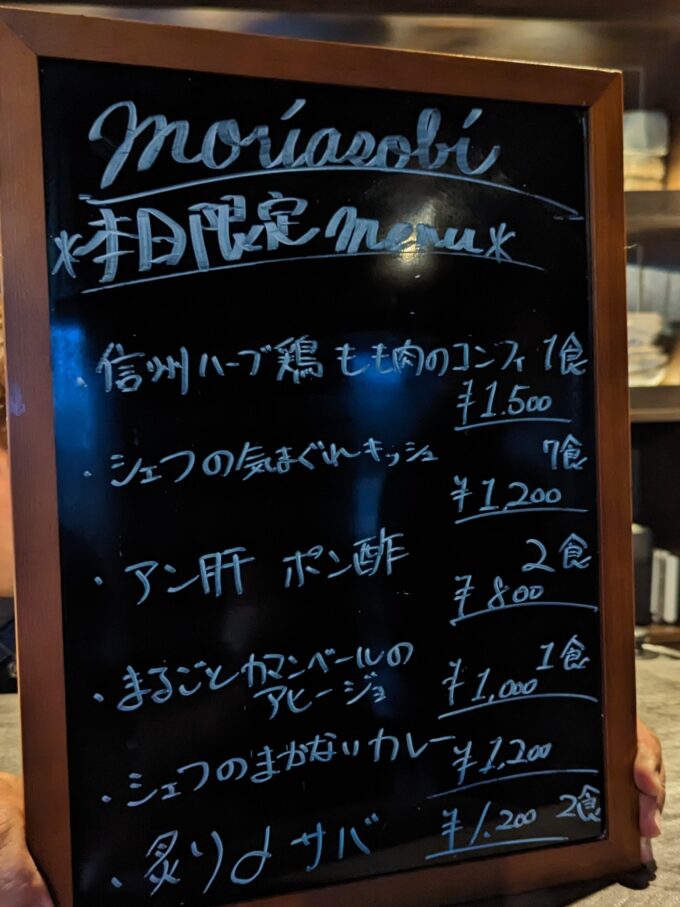 Moriasobi
*本日限定 menu*
・信州ハーブ鶏 もも肉のコンフィ 1食
¥1.500
・シェフの気まぐれキッシュ 7食
¥1,200
・アン肝 ポン酢 2食
¥800
・まるごとカマンベールの 1食
アヒージョ ¥1,000
・シェフのまかないカレー ¥1.200
・炙り〆サバ ¥1.200 2食